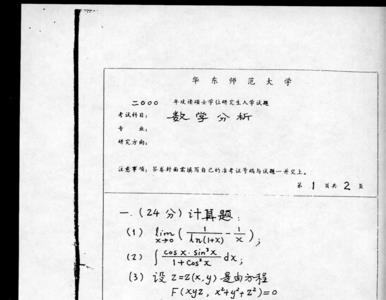 华东师范大学
二000 年攻读硕士学位研究生入学试题
考试科目: 数学分析
专 业:
研究方向:
注意事项: 答卷封面需填写自己的准考证号码与试题一并交上。
第 1 页共 2 页
一.(24分)计算题:
(1) lim x→0 ( 1/ln(1+x) - 1/x );
(2) ∫ cosx·sin³x / 1+cos²x dx;
(3) 设 z=z(x,y) 是由方程
F(xyz, x²+y²+z²)=0